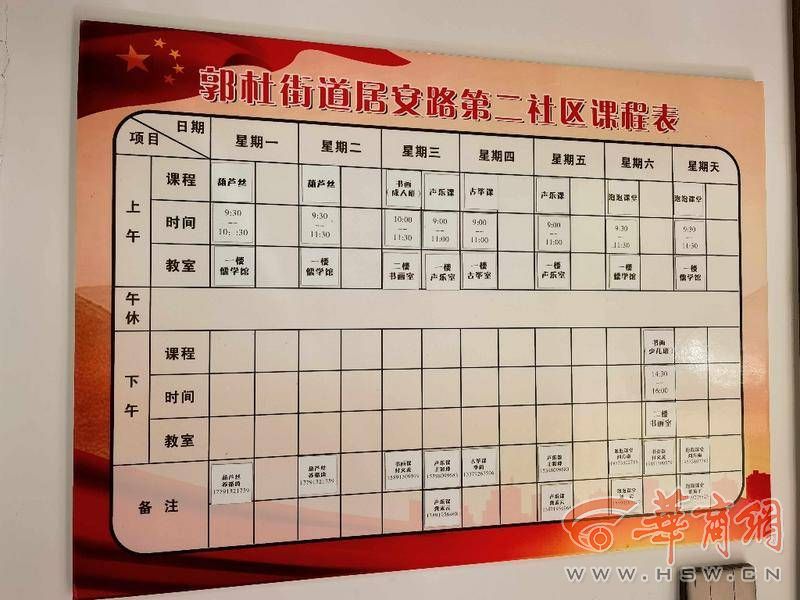 郭杜街道居安路第二社区课程表
日期
项目
星期一 星期二 星期三 星期四 星期五 星期六 星期天
上午
课程 葫芦丝 葫芦丝 书画(成人班) 声乐课 古筝课 声乐课 泡泡课堂 泡泡课堂
时间 9:30—10::30 9:30—11:30 10:00—11:30 9:00—11:00 9:00—11:00 9:00—11:00 9:30—11:30 9:30—11:30
教室 一楼儒学馆 一楼儒学馆 二楼书画室 一楼声乐室 一楼古筝室 一楼声乐室 一楼儒学馆 一楼儒学馆
午休
下午
课程 书画(少儿班)
时间 14:30—16:00
教室 二楼书画室
备注
葫芦丝 葫芦丝 书画课 声乐课 古筝课 声乐课 泡泡课堂 书画课 泡泡课堂
声乐课 声乐课 泡泡课堂 泡泡课堂
華商網
WWW.HSW.CN